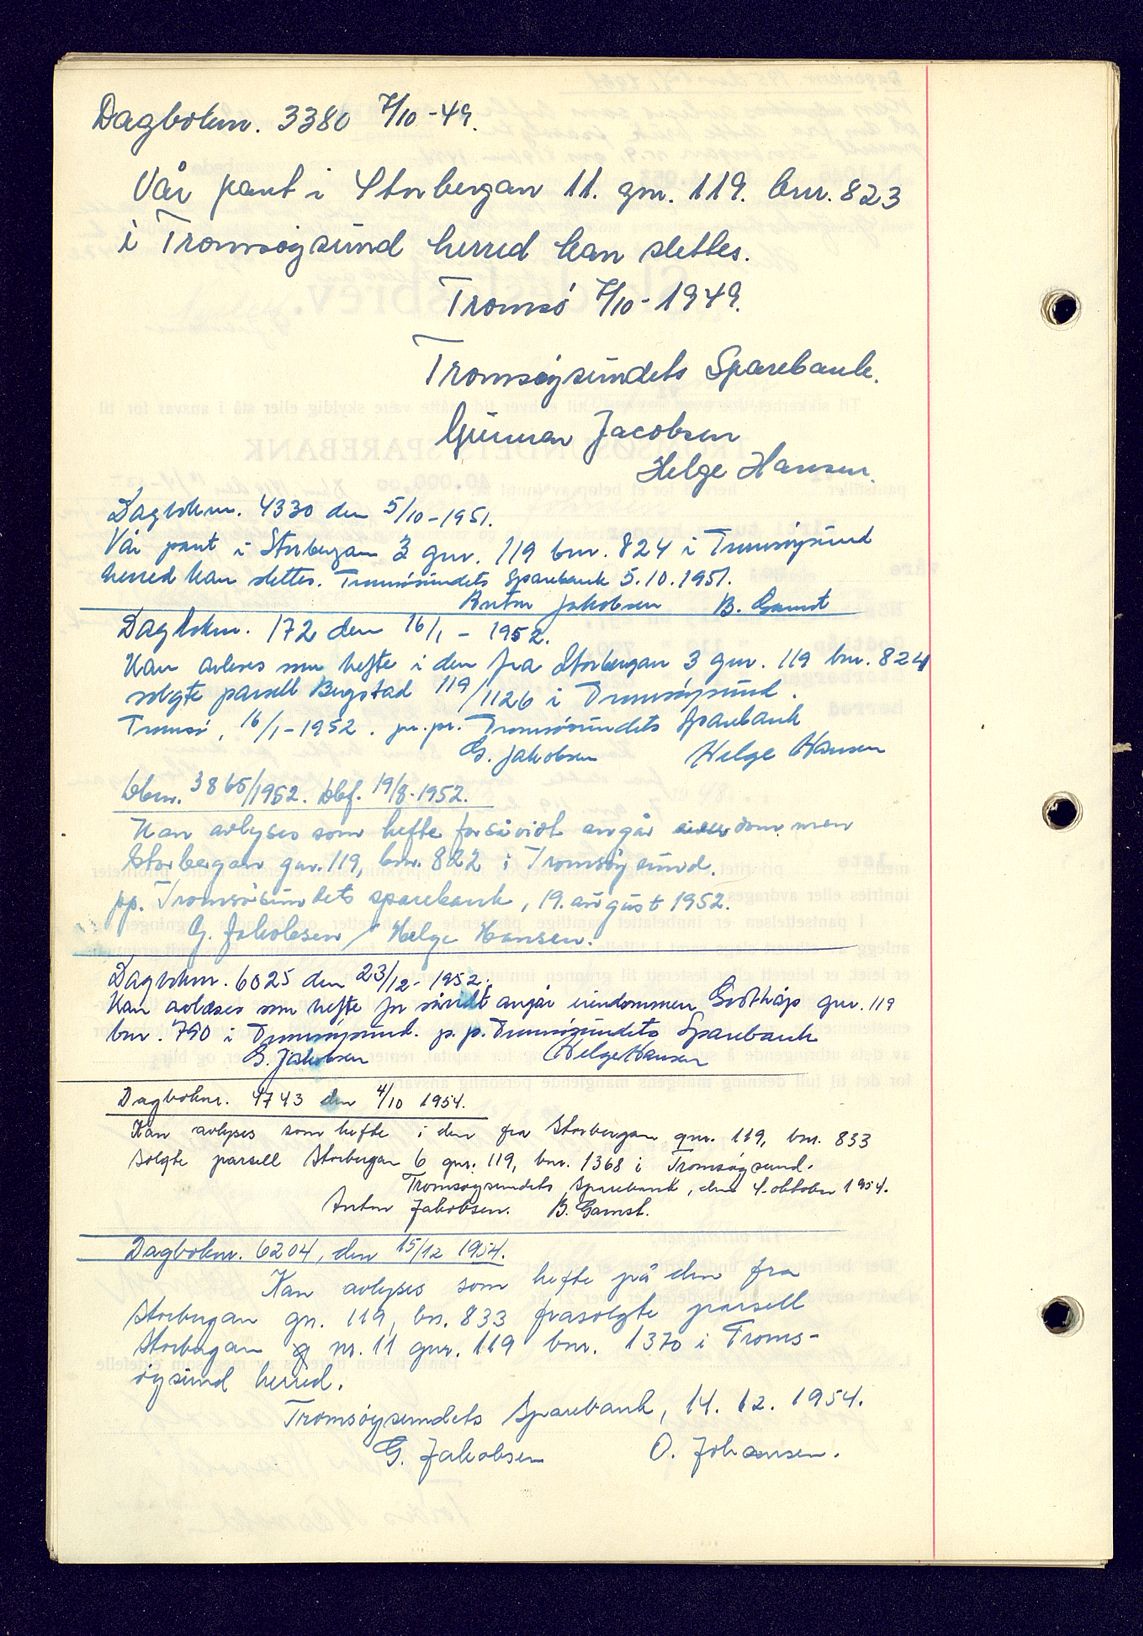 Dagboknr. 3380 7/10-49.
Vår pant i Storbergan 11. gnr. 119. bnr. 823
i Tromsøysund herred kan slettes.
Tromsø 7/10-1949.
Tromsøysundets Sparebank.
Gunnar Jacobsen
Helge Hansen.
Dagboknr. 4330 den 5/10-1951.
Vår pant i Storbergan 3 gnr. 119 bnr. 824 i Tromsøysund
herred kan slettes. Tromsøsundets Sparebank 5.10.1951.
Anton Jakobsen B. Gamst
Dagboknr. 172 den 16/1 - 1952.
Kan avleses som hefte i den fra Storbergan 3 gnr. 119 bnr. 824
solgte parsell Bugstad 119/1126 i Tromsøysund.
Tromsø, 16/1-1952. pr. pr. Tromsøsundets Sparebank
G. Jakobsen Helge Hansen
Dbnr. 3865/1952. Dbf. 19/8-1952.
Kan avlyses som hefte forsåvidt angår eiendommen
Storbergan gnr. 119, bnr. 822 i Tromsøysund.
pp. Tromsøsundets sparebank, 19. august 1952.
G. Jakobsen / Helge Hansen.
Dagboknr. 6025 den 23/12-1952.
Kan avleses som hefte for såvidt angår eiendommen Godthåp gnr. 119
bnr. 790 i Tromsøysund. p.p. Tromsøysundets Sparebank
G. Jakobsen Helge Hansen
Dagboknr. 4743 den 4/10 1954.
Kan avlyses som hefte i den fra Storbergan gnr. 119, bnr. 833
solgte parsell Storbergan 6 gnr. 119, bnr. 1368 i Tromsøysund.
Tromsøysundets Sparebank, den 4. oktober 1954.
Anton Jakobsen. B. Gamst.
Dagboknr. 6204, den 15/12 1954.
Kan avlyses som hefte på den fra
Storbergan gn. 119, bn. 833 frasolgte parsell
Storbergan nr. 11 gnr. 119 bnr. 1370 i Troms-
øysund herred.
Tromsøysundets Sparebank, 14. 12. 1954.
G. Jakobsen O. Johansen.